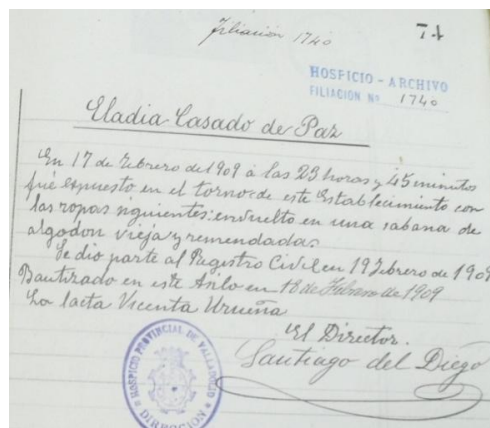 Filiación 1740
74
HOSPICIO - ARCHIVO
FILIACION Nº 1740
Eladia Casado de Paz
En 17 de Febrero de 1909 á las 23 horas y 45 minutos
fué expuesto en el torno de este Establecimiento con
las ropas siguientes: envuelto en una sabana de
algodon vieja y remendada.
Se dio parte al Registro Civil en 19 Febrero de 1909
Bautizado en este Asilo en 18 de Febrero de 1909
La lacta Vicenta Urueña
El Director.
Santiago del Diego
HOSPICIO PROVINCIAL DE VALLADOLID
DIRECCION